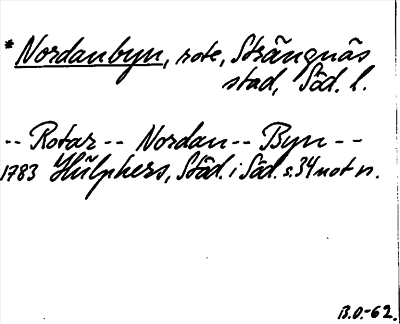 * Nordanbyn, rote, Strängnäs
stad, Söd. l.
-- Rotar -- Nordan -- Byn --
1783 Hülphers, Städ. i Söd. s. 34 not n.
B.O.-62.